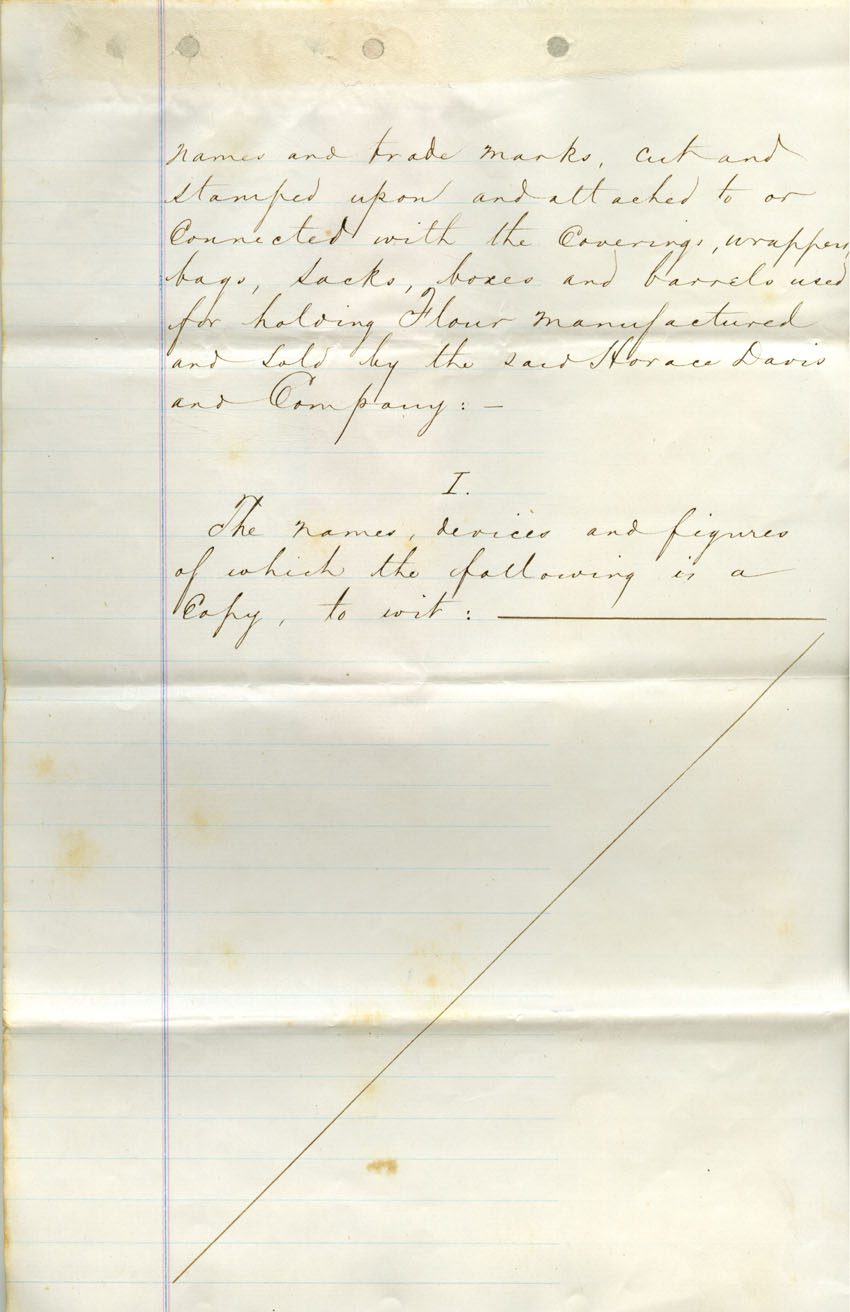 names and trade marks, cut and
stamped upon and attached to or
Connected with the Coverings, wrappers,
bags, sacks, boxes and barrels used
for holding Flour manufactured
and sold by the said Horace Davis
and Company: —
I.
The names, devices and figures
of which the following is a
Copy, to wit: —